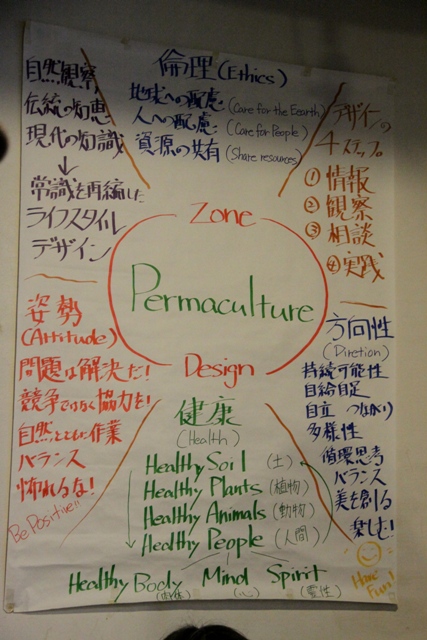 自然観察
伝統の知恵
現代の知識
↓
常識を再編した
ライフスタイル
デザイン
倫理(Ethics)
地球への配慮(Care for the Eearth)
人への配慮(Care for People)
資源の共有(Share resources)
デザインの
4ステップ
①情報
②観察
③相談
④実践
Zone
Permaculture
Design
姿勢
(Attitude)
問題は解決だ!
競争ではなく協力を!
自然とともに作業
バランス
怖れるな!
Be Positive!!
健康
(Health)
Healthy Soil (土)
Healthy Plants (植物)
Healthy Animals (動物)
Healthy People (人間)
Healthy Body Mind Spirit
(心) (霊性)
方向性
(Diretion)
持続可能性
自給自足
自立 つながり
多様性
循環思考
バランス
美を創る
楽しむ!
Have Fun!